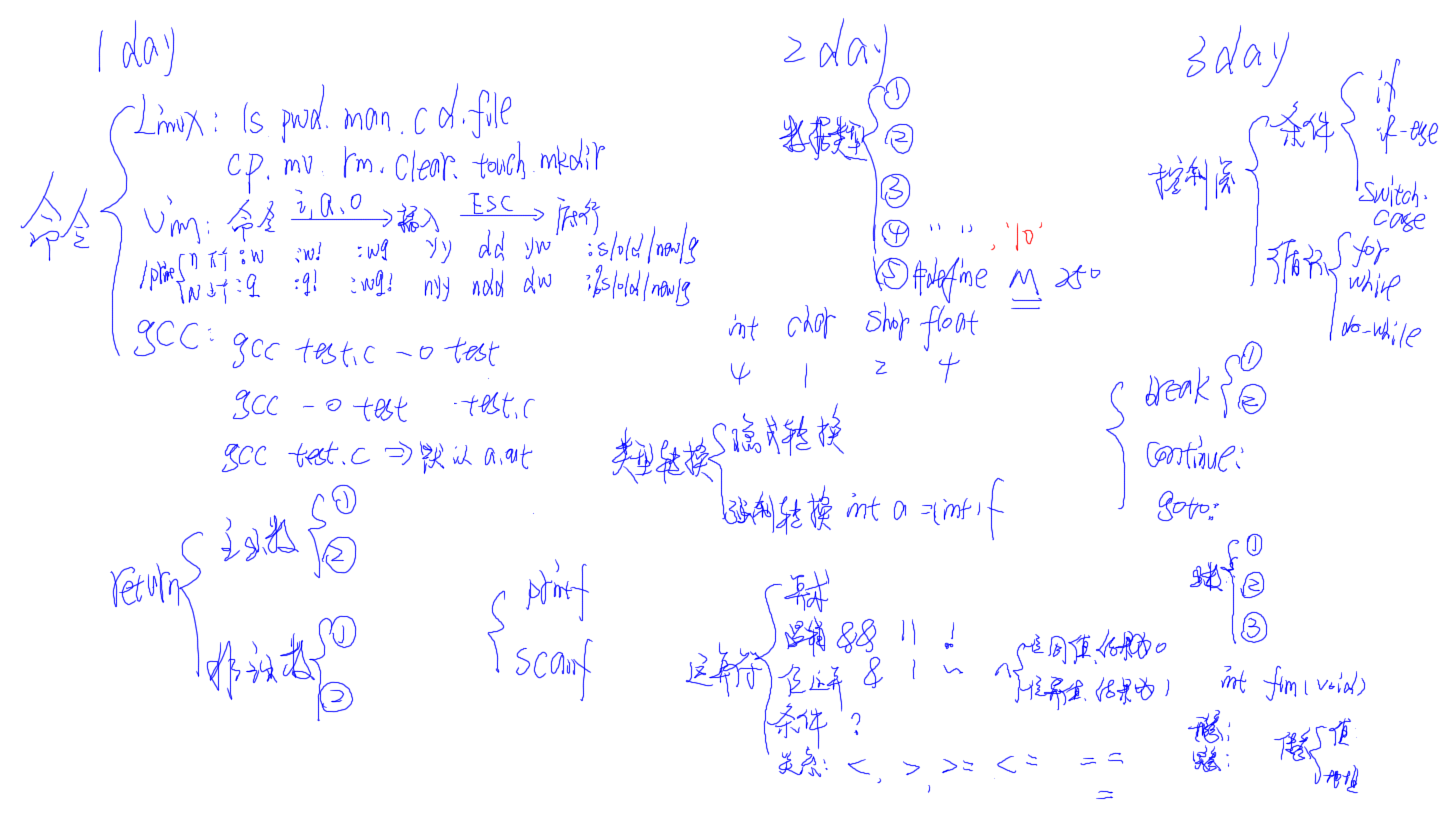 1 day
命令
Linux: ls pwd. man. cd. file
cp. mv. rm. clear. touch. mkdir
Vim: 命令 i,a,o 插入 ESC 底行
n 下 :w :w! :wq yy dd yw :s/old/new/g
N 上 :q :q! :wq! nyy ndd dw :%s/old/new/g
gcc: gcc test.c -o test
gcc -o test test.c
gcc test.c => 默认 a.out
return
主函数 ① ②
非主函数 ① ②
printf
scanf
2 day
数据类型
①
②
③
④ " " , '\0'
⑤ #define M 250
int char shor float
4 1 2 4
类型转换
隐式转换
强制转换 int a = (int) f
运算符
算术
逻辑 && || !
位运算 & | ~ ^
位同值,结果为0
位异值,结果为1
条件 ?
关系: <, >, >= <= ==
=
3 day
控制流
条件
if
if-else
switch-
case
循环
for
while
do-while
break ① ②
continue:
goto:
函数
①
②
③
int fun(void)
形参:
实参:
传参
值
地址